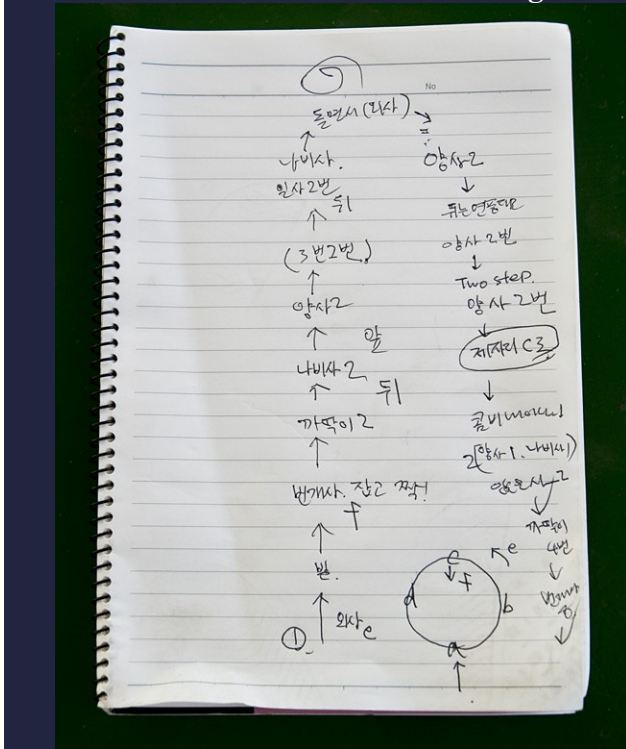 No
돌면서 (외사)
나비사.
일사 2번
뒤
(3번 2번)
양사 2
앞
나비사 2
뒤
까딱이 2
번개사. 잡고 짝!
f
발.
① 외사 e
양사 2
뛰는
양사 2번
Two step.
양사 2번
제자리 C로
2(양사 1. 나비사 1)
까딱이
4번
c
e
f
d
b
a